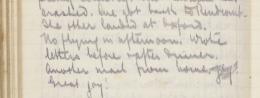 crashed. One got back to Rendcomb.
The other landed at Oxford.
No flying in afternoon. Wrote
letters before & after dinner.
Another mail from home,
Great joy!